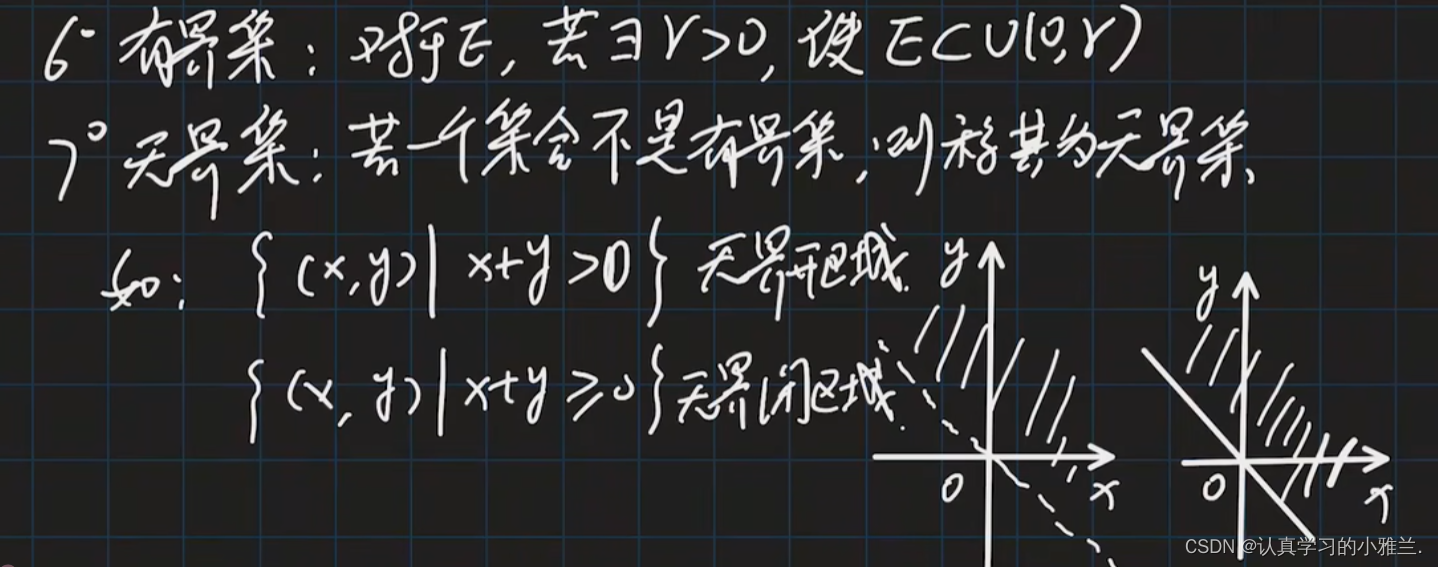 6° 有界集：对于E, 若∃r>0, 使E⊂U(0,r)
7° 无界集：若一个集合不是有界集,则称其为无界集、
如：{(x,y)|x+y>0}无界开区域.
{(x,y)|x+y≥0}无界闭区域.
y
0
x
y
0
x
CSDN @认真学习的小雅兰.